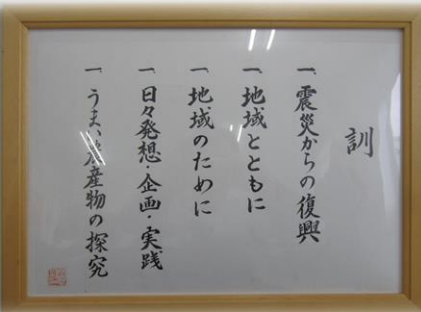 訓
一、震災からの復興
一、地域とともに
一、地域のために
一、日々発想・企画・実践
一、うまい水産物の探究